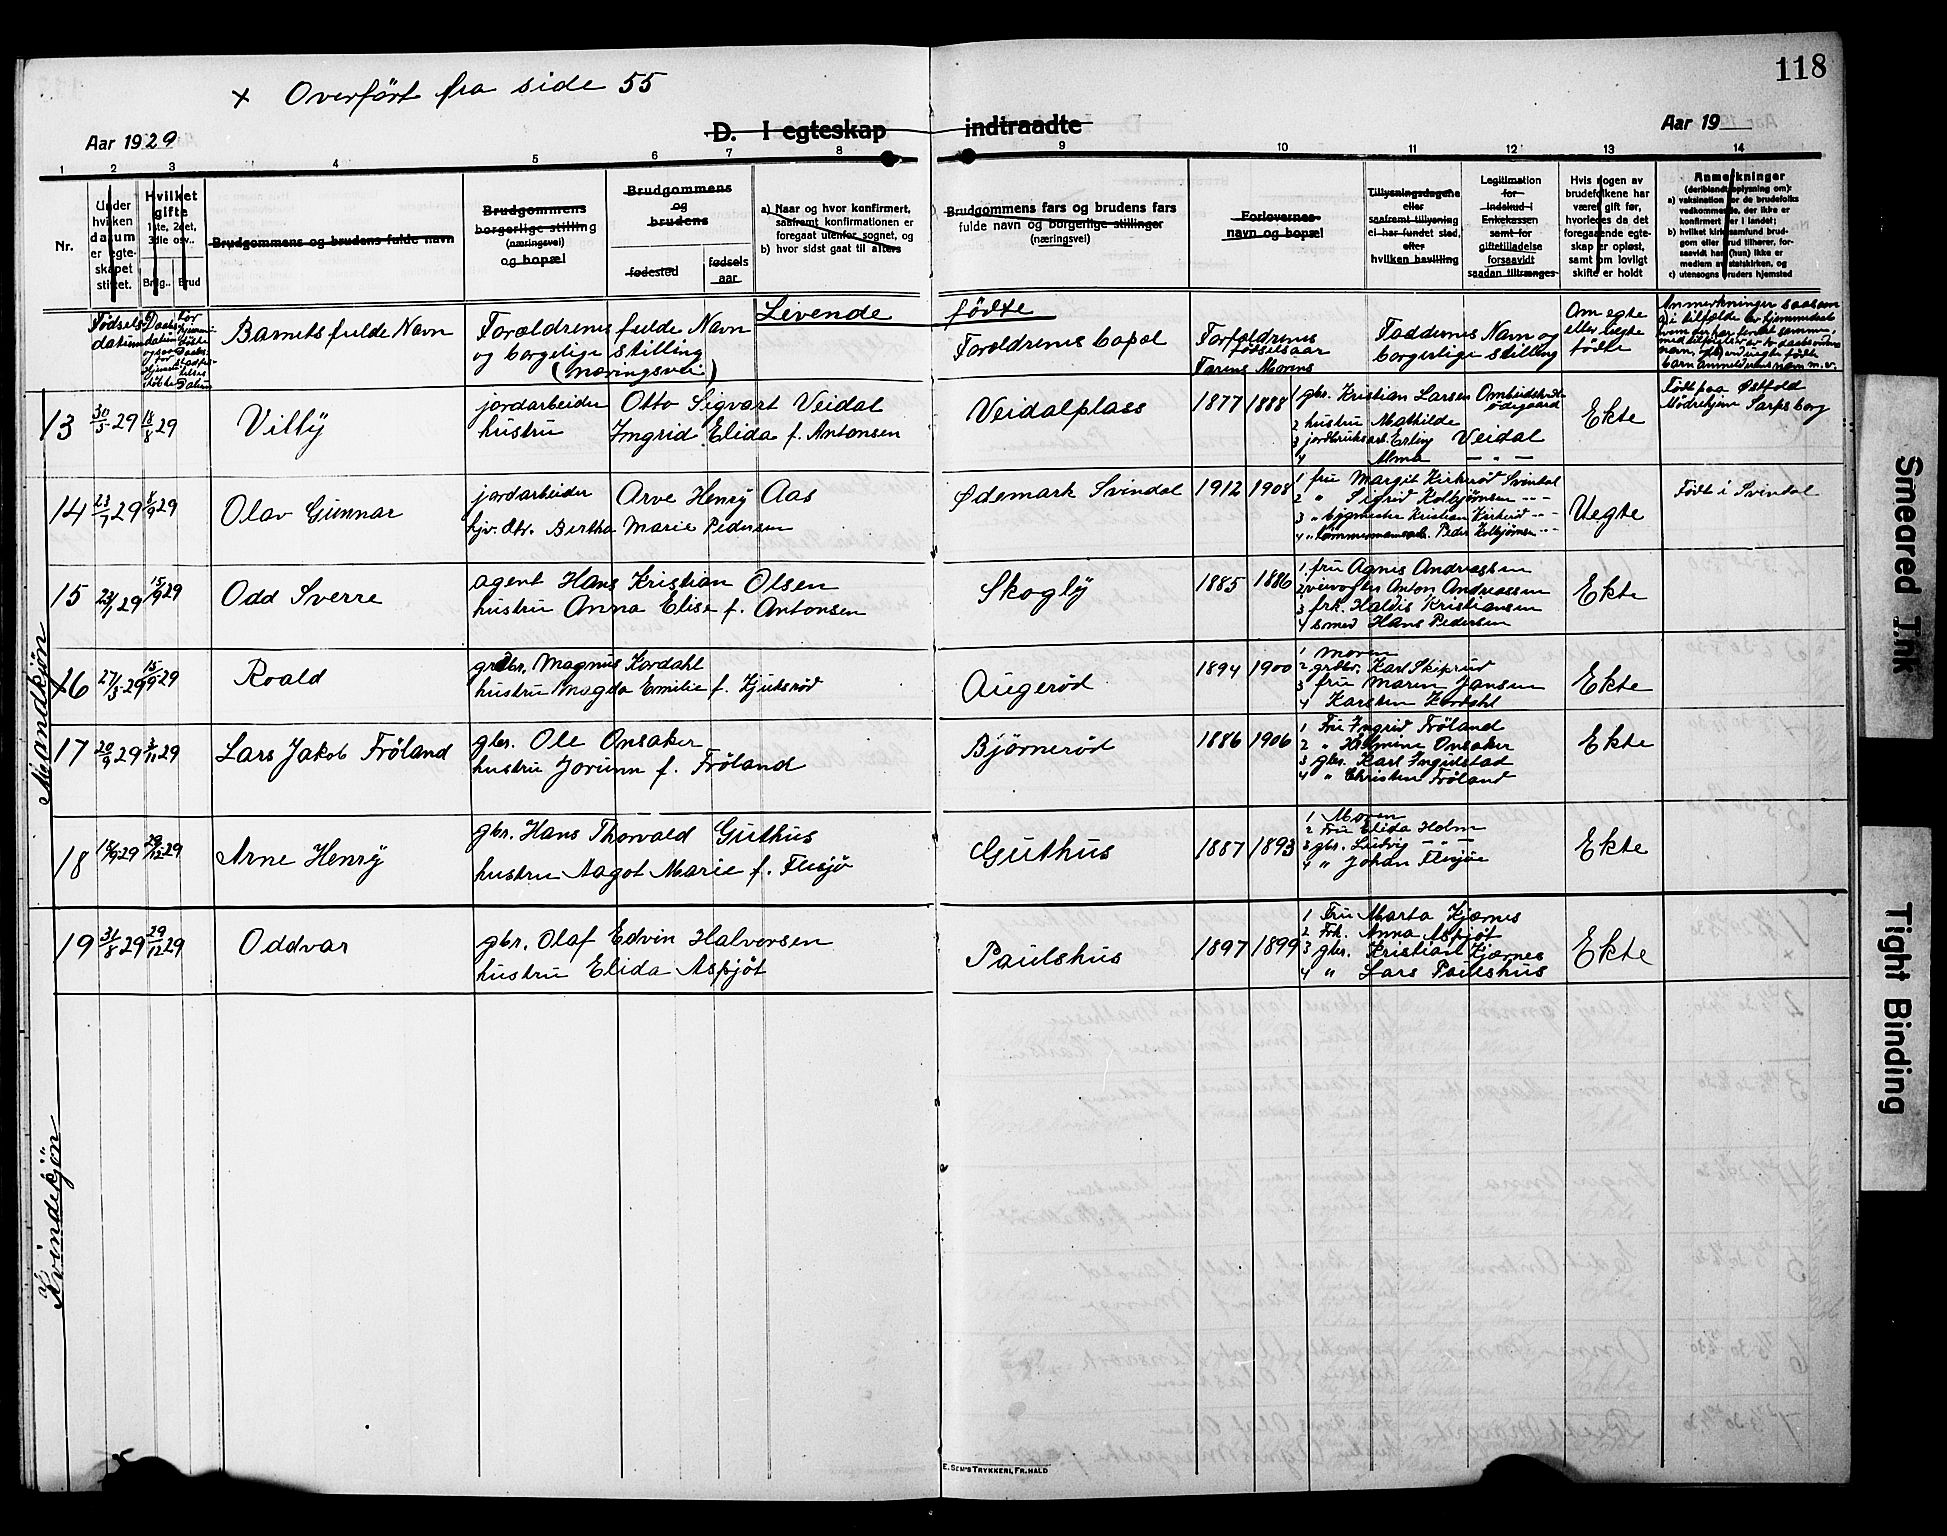 118
x Overført fra side 55
Aar 1929
D. I egteskap indtraadte
Aar 19
1 2 3 4 5 6 7 8 9 10 11 12 13 14
Nr.
Under hvilken datum er egteskapet stiftet.
Hvilket gifte 1ste, 2det, 3die osv..
Brudg.. Brud
Brudgommens og brudens fulde navn
Brudgommens borgerlige stilling (næringsvei) og bopæl
Brudgommens og brudens
fødested
fødselsaar
a) Naar og hvor konfirmert, saafremt konfirmationen er foregaat utenfor sognet, og
b) hvor sidst gaat til alters
Brudgommens fars og brudens fars fulde navn og borgerlige stillinger (næringsvei)
Forlovernes navn og bopæl
Tillysningsdagene eller saafremt tillysning ei har fundet sted, efter hvilken bevilling
Legitimation for indskud i Enkekassen samt for giftetilladelse forsaavidt saadan tiltrænges
Hvis nogen av brudefolkene har været gift før, hvorledes da det foregaaende egteskap er opløst, samt om lovligt skifte er holdt
Anmerkninger (deriblandt oplysning om):
a) vaksination for de brudefolks vedkommende, der ikke er konfirmert her i landet;
b) hvilket kirkesamfund brudgom eller brud tilhører, forsaavidt han (hun) ikke er medlem av statskirken, og
c) utensogns bruders hjemsted
Livende fødte
Fødsels datum
Barnets fulde Navn
Forældrenes fulde Navn og borgelige stilling (Næringsvei)
Foroldrenes bopol
Forfoldrenes fødselsaar
Farens Morens
Faddernes Navn og borgerlige stilling
Om egte eller uegte fødte
Mandkjön
13 30/5 29 18/8 29 Villy
jordarbeider Otto Sigvart Veidal
hustru Ingrid Elida f. Antonsen
Veidalplass 1877 1888
1 gbr. Kristian Larsen
2 hustru Mathilde
3 jordbruksarb. Erling Veidal
4 Alma — " —
Ekte
Født paa Østfold
Mødrehjem Sarpsborg
14 23/7 29 8/9 29 Olav Gunnar
jordarbeider Arve Henry Aas
hjv. dtr. Bertha Marie Pedersen
Ødemark Svindal 1912 1908
1 fru Margit Kirkerød Svindal
2 " Sigrid Kolbjørnsen - " -
3 " bygmester Kristian Kirkerød - " -
4 " tømmermannsarb. Peder Kolbjørnsen - " -
Uegte
Født i Svindal
15 29 15/9 29 Odd Sverre
agent Hans Kristian Olsen
hustru Anna Elise f. Antonsen
Skogly 1885 1886
1 fru Agnes Andreassen
2 veivogter Anton Andreassen
3 frk. Haldis Kristiansen
4 smed Hans Pedersen
Ekte
16 27/3 29 15/9 29 Roald
grdbr. Magnus Kordahl
hustru Magda Emilie f. Kjutsrød
Augerød 1894 1900
1 moren
2 grdbr. Karl Skiprud
3 fru Maren Jansen
4 Karsten Kordahl
Ekte
17 20/9 29 3/11 29 Lars Jakob Fröland
gbr. Ole Onsaker
hustru Jorunn f. Fröland
Bjørnerød 1886 1906
1 Fru Ingrid Fröland
2 " Helmine Onsaker
3 gbr. Karl Ingulstad
4 " Christen Fröland
Ekte
18 29 29/12 29 Arne Henry
gbr. Hans Thorvald Guthus
hustru Aagot Marie f. Flesjø
Guthus 1887 1893
1 Moren
2 Fru Elida Holm
3 gbr. Ludvig — " —
4 " Johan Flesjøe
Ekte
19 31/8 29 29/12 29 Oddvar
gbr. Olaf Edvin Halvorsen
hustru Elida Aspjøt
Paulshus 1897 1899
1 Fru Marta Kjærnes
2 Frk. Anna Aspjøt
3 gbr. Kristian Kjærnes
4 " Lars Paulshus
Ekte
Kvindekjön
E. SEM'S TRYKKERI, FR.HALD
Smeared Ink
Tight Binding